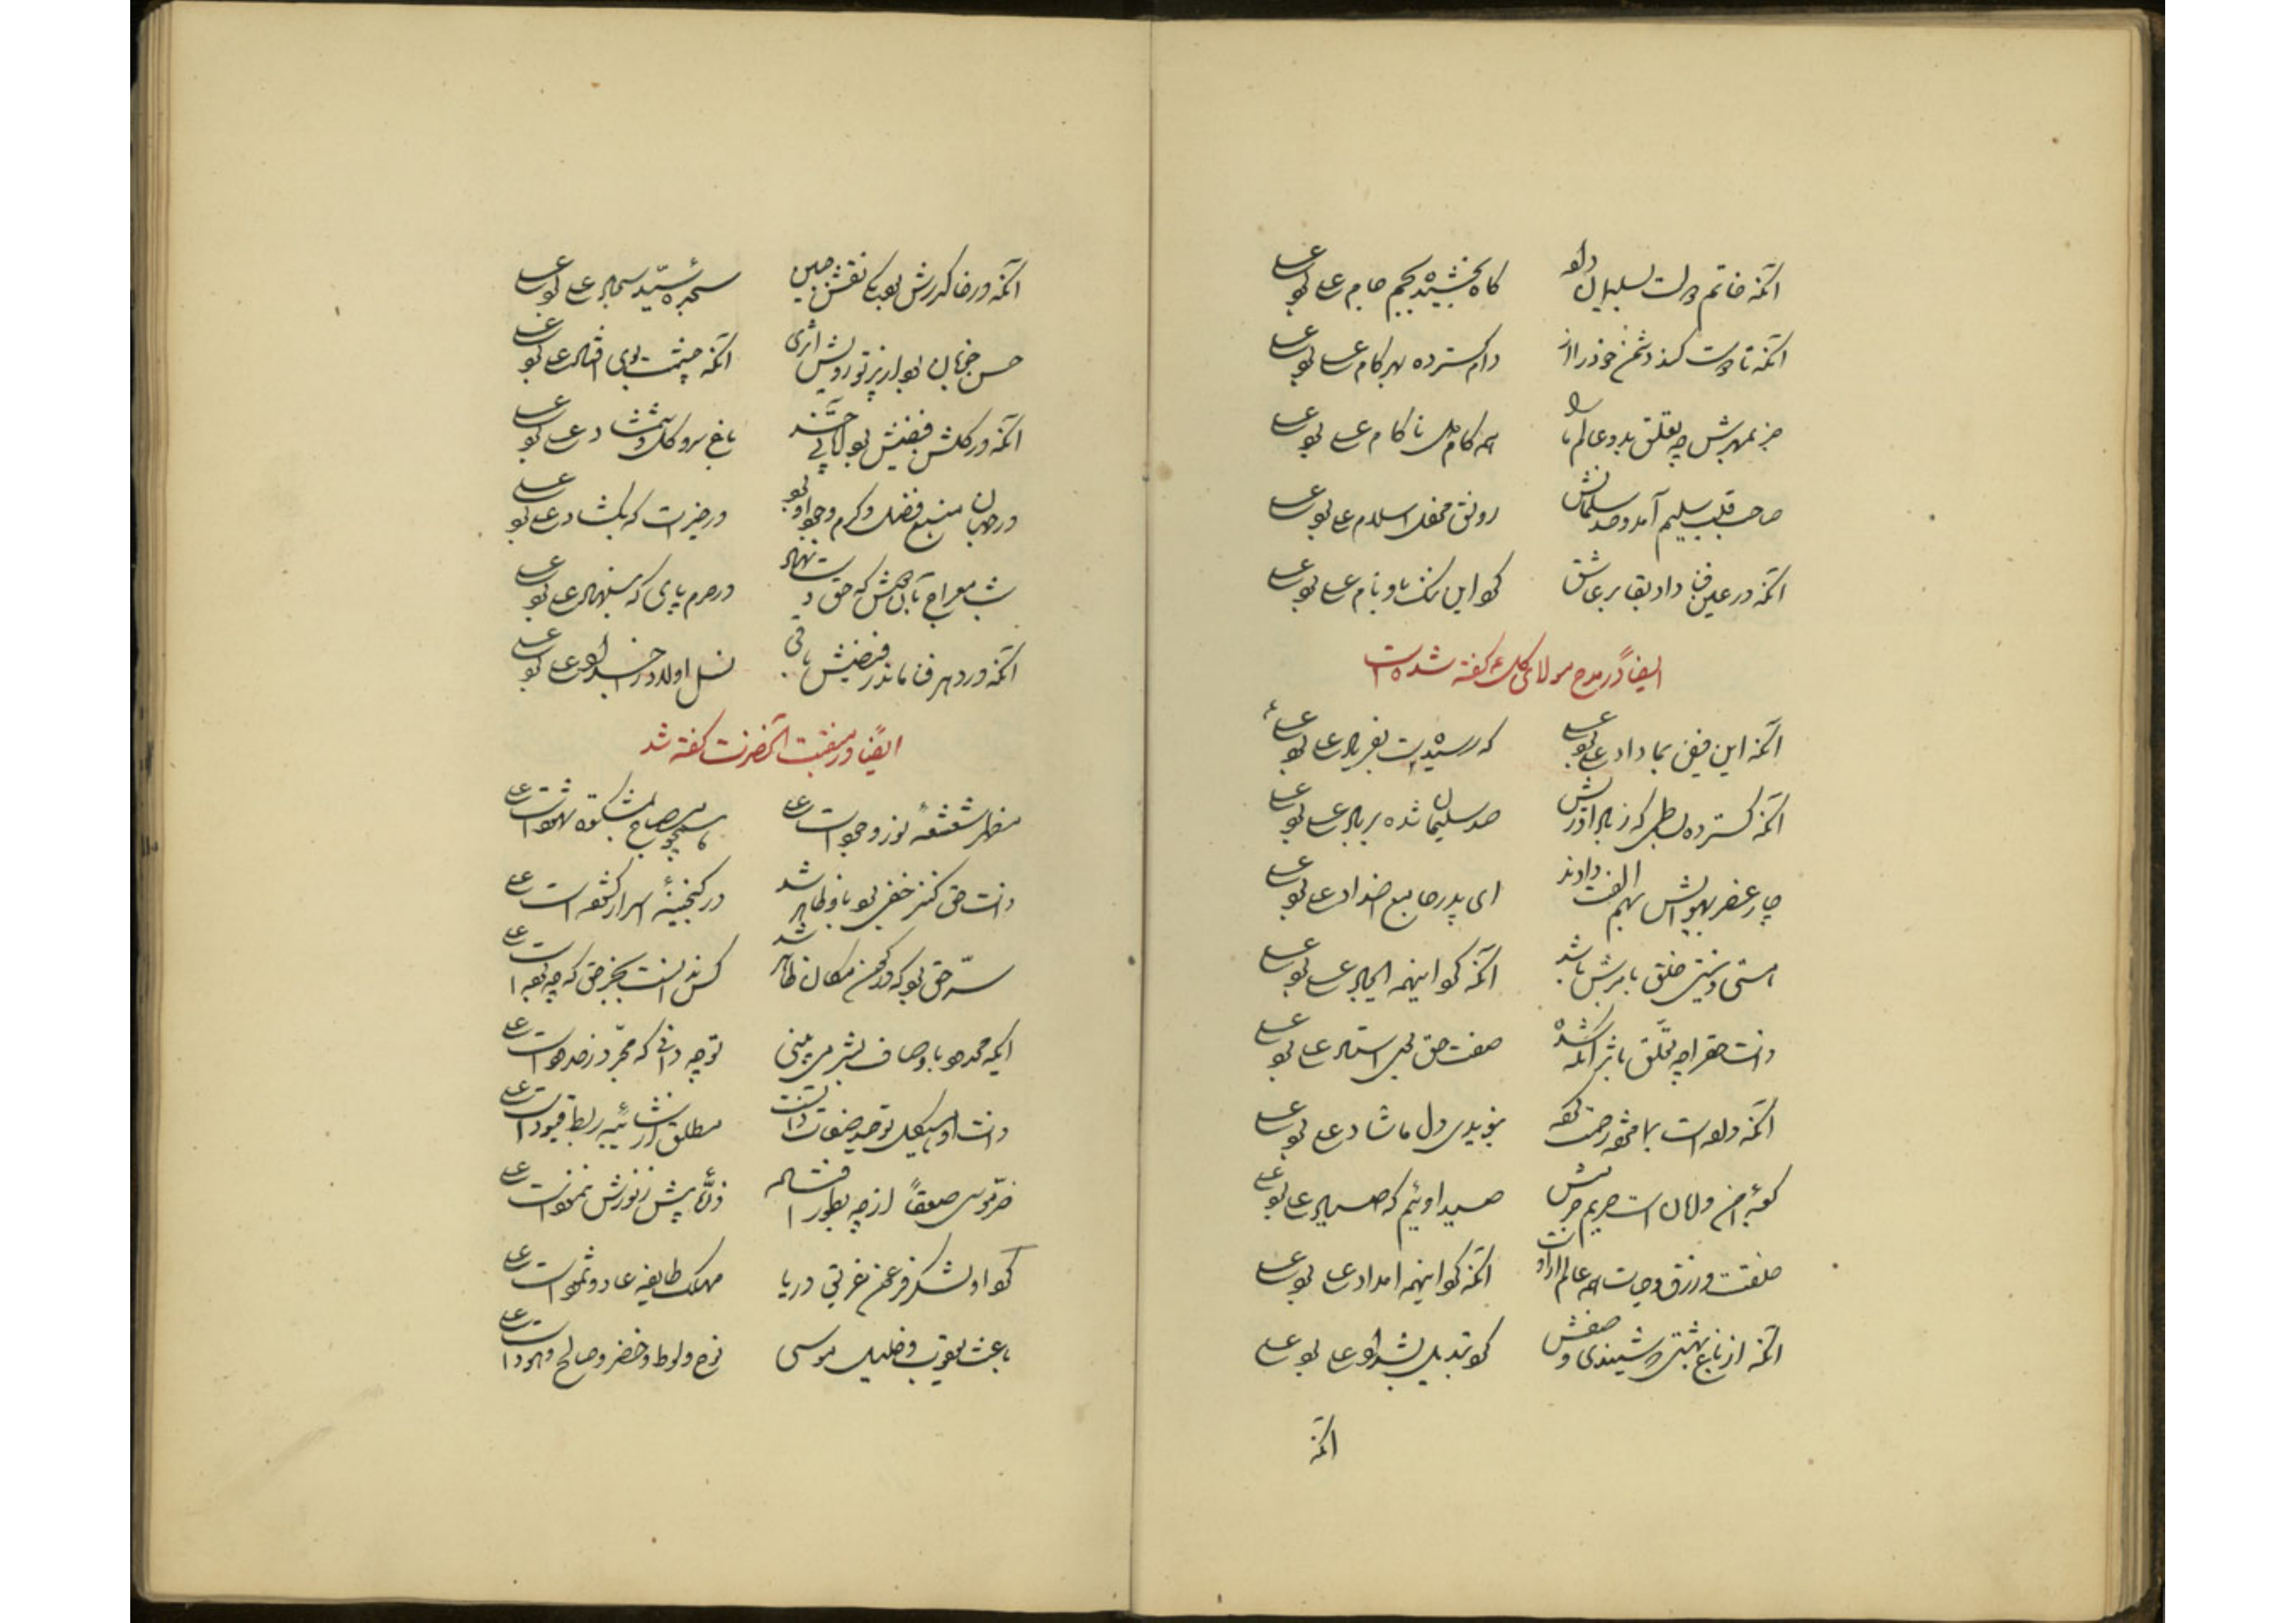 آنکه خاتم بدست سلیمان داد گاه بخشیده بجم جام علی بود علی
آنکه تا دوست کند دشمن خود را از دام گسترده بهر گام علی بود علی
جز بمهرش چه تعلق بدو عالم ما را همه کام دل ناکام علی بود علی
صاحب قلب سلیم آمد و صد سلمانش رونق محفل اسلام علی بود علی
آنکه در عین فنا داد بقا بر عاشق گو این ننگ و نام علی بود علی
ایضاً در مدح مولای کل گفته شده است
آنکه این فیض بما داد علی بود علی که رسیدست بفریاد علی بود علی
آنکه گسترده بساطی که ز باد آوردش صد سلیمان شده بر باد علی بود علی
چار عنصر بهوایش بهم الفت دادند ای پدر جامع اضداد علی بود علی
هستی و نیستی خلق بامرش باشد آنکه گو اینهمه ایجاد علی بود علی
ذات حق را چه تعلق باثر آنکه شده صفت حق بحق استاد علی بود علی
آنکه داده است بما مژده رحمت گفته بنویدی دل ما شاد علی بود علی
کعبه امن و امان است حریم حرمش صید اوئیم که صیاد علی بود علی
خلقت و رزق و حیات همه عالم از اوست آنکه گو اینهمه امداد علی بود علی
آنکه از باغ بهشتی شنیدی وصفش گو تبدیل بشداد علی بود علی
آنکه
آنکه در خاک درش بود یکی نقش جبین سجده سید سجاد علی بود علی
حسن خوبان بود از پرتو رویش اثری آنکه حیثیت بوی افتاد علی بود علی
آنکه در گلشن فیضش بود آبای چند باغ سرو گل و شمشاد علی بود علی
در جهان منبع فضل و کرم و جود او بود در خیرات که بگشاد علی بود علی
شب معراج بآن دوش که حق دست نهاد در حرم پای که بنهاد علی بود علی
آنکه در دهر فنا ماند ز فیضش باقی نسل اولاد و خداداد علی بود علی
ایضاً در منقبت آنحضرت گفته شد
مظهر شعشعه نور وجودست علی مصباح بمشکوة شهودست علی
ذات حق کنز خفی بود باو ظاهر شد در گنجینه اسرار گشوده است علی
سر حق بود که در کون و مکان ظاهر شد کس ندانست بجز حق که چه بوده است علی
ایکه محدود باوصاف بشر می بینی تو چه دانی که مجرد ز حدودست علی
ذات او هیکل توحید صفات ذاتست مطلق از شائبه ربط قیودست علی
خر موسی صعقاً از چه بطور افتادی ذره پیش ز نورش ننمودست علی
گو او لشکر فرعون غریق دریا مهلک طایفه عاد و ثمودست علی
باعث یعقوب و خلیل و موسی نوح و لوط و خضر و صالح و هودست علی